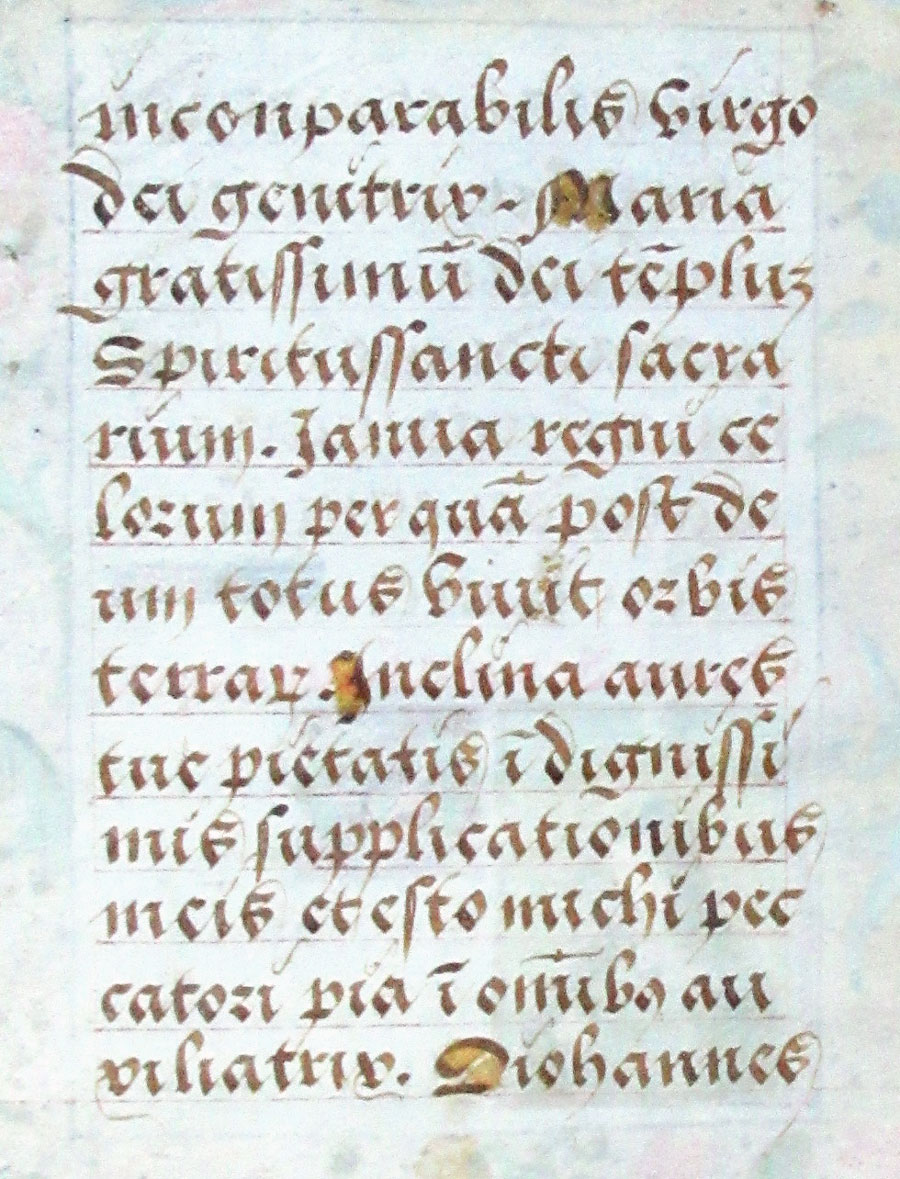 inconparabilis Virgo
dei genitrix - Maria
gratissimū dei tēpluz
Spiritussancti sacra
rium. Ianua regni ce
lorum per quā post de
um totus Viuit orbis
terraꝝ. Inclina aures
tue pietatis ī dignissi
mis supplicationibus
meis et esto michi pec
catori pia ī om̄ibꝯ au
xiliatrix. O iohannes